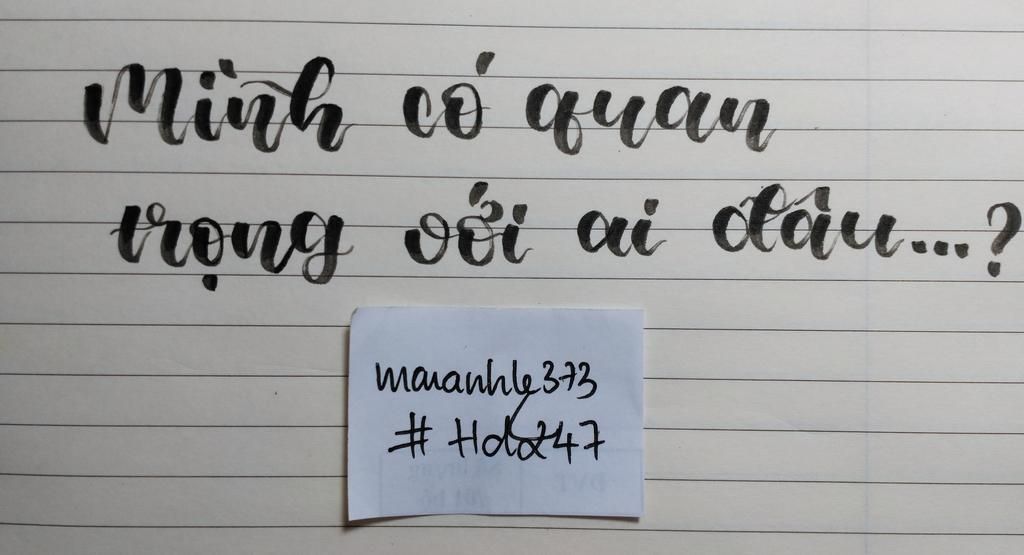 Mình có quan
trọng với ai đâu...?
maianhle373
# Hd247